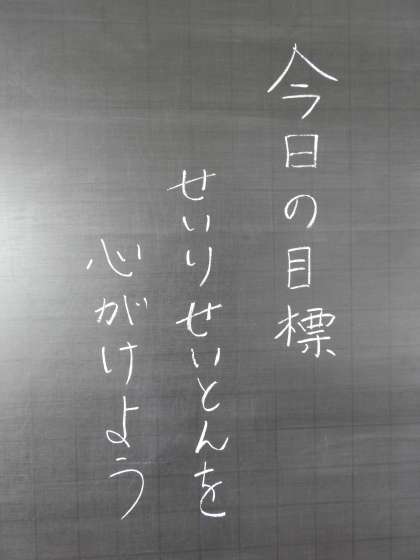 今日の目標
せいりせいとんを
心がけよう